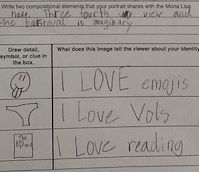 Write two compositional elements that your portrait shares with the Mona Lisa.
I have Three fourth view and
the backround is imaginary
Draw detail, symbol, or clue in the box.
What does this image tell the viewer about your identity
I LOVE emojis
I Love Vols
The
I Love reading